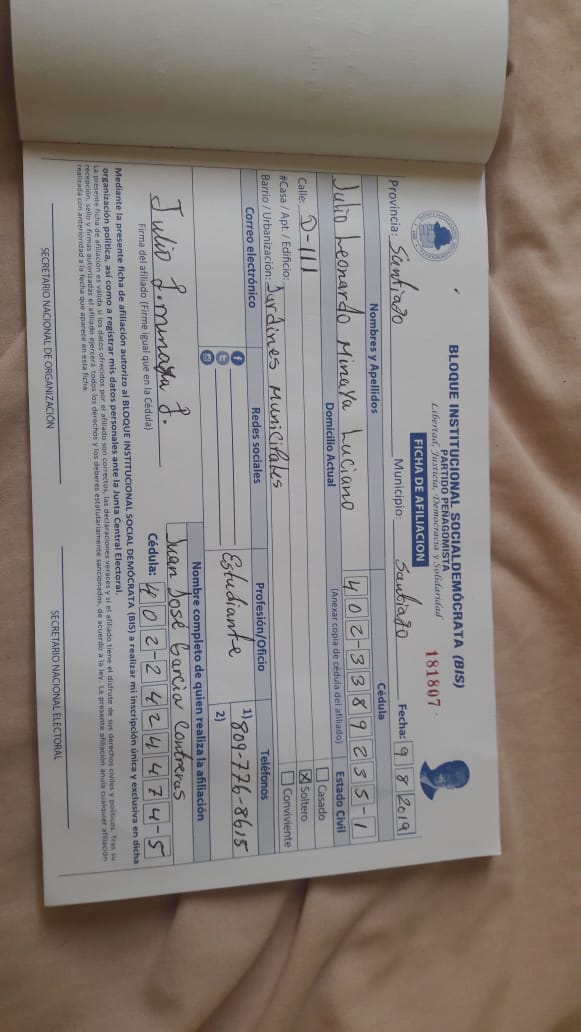 BLOQUE INSTITUCIONAL SOCIALDEMÓCRATA (BIS)
PARTIDO PEÑAGOMISTA
Libertad, Justicia, Democracia y Solidaridad
FICHA DE AFILIACION
181807
Provincia: Santiago Municipio: Santiago Fecha: 9 8 2019
Nombres y Apellidos Cédula
Julio Leonardo Minaya Luciano 402-3389235-1
Domicilio Actual (Anexar copia de cédula del afiliado) Estado Civil
Calle: D-111 Casado
#Casa / Apt. / Edificio: Soltero
Barrio / Urbanización: Jardines Municipales Conviviente
Correo electrónico Redes sociales Profesión/Oficio Teléfonos
Estudiante 1) 809-776-8615
2)
Nombre completo de quien realiza la afiliación
Julio L. minaya L. Juan José García Contreras
Firma del afiliado (Firme igual que en la Cédula) Cédula: 402-2424474-5
Mediante la presente ficha de afiliación autorizo al BLOQUE INSTITUCIONAL SOCIAL DEMÓCRATA (BIS) a realizar mi inscripción única y exclusiva en dicha
organización política, así como a registrar mis datos personales ante la Junta Central Electoral.
La presente ficha de afiliación es válida si los datos ofrecidos por el afiliado son correctos, las declaraciones veraces y si el afiliado tiene el disfrute de sus derechos civiles y políticos. Tras su
recepción, sello y firmas autorizadas el afiliado ejercerá todos los derechos y los deberes estatutariamente sancionados, de acuerdo a la ley. La presente afiliación anula cualquier afiliación
realizada con anterioridad a la fecha que aparece en esta ficha.
SECRETARIO NACIONAL DE ORGANIZACIÓN SECRETARIO NACIONAL ELECTORAL